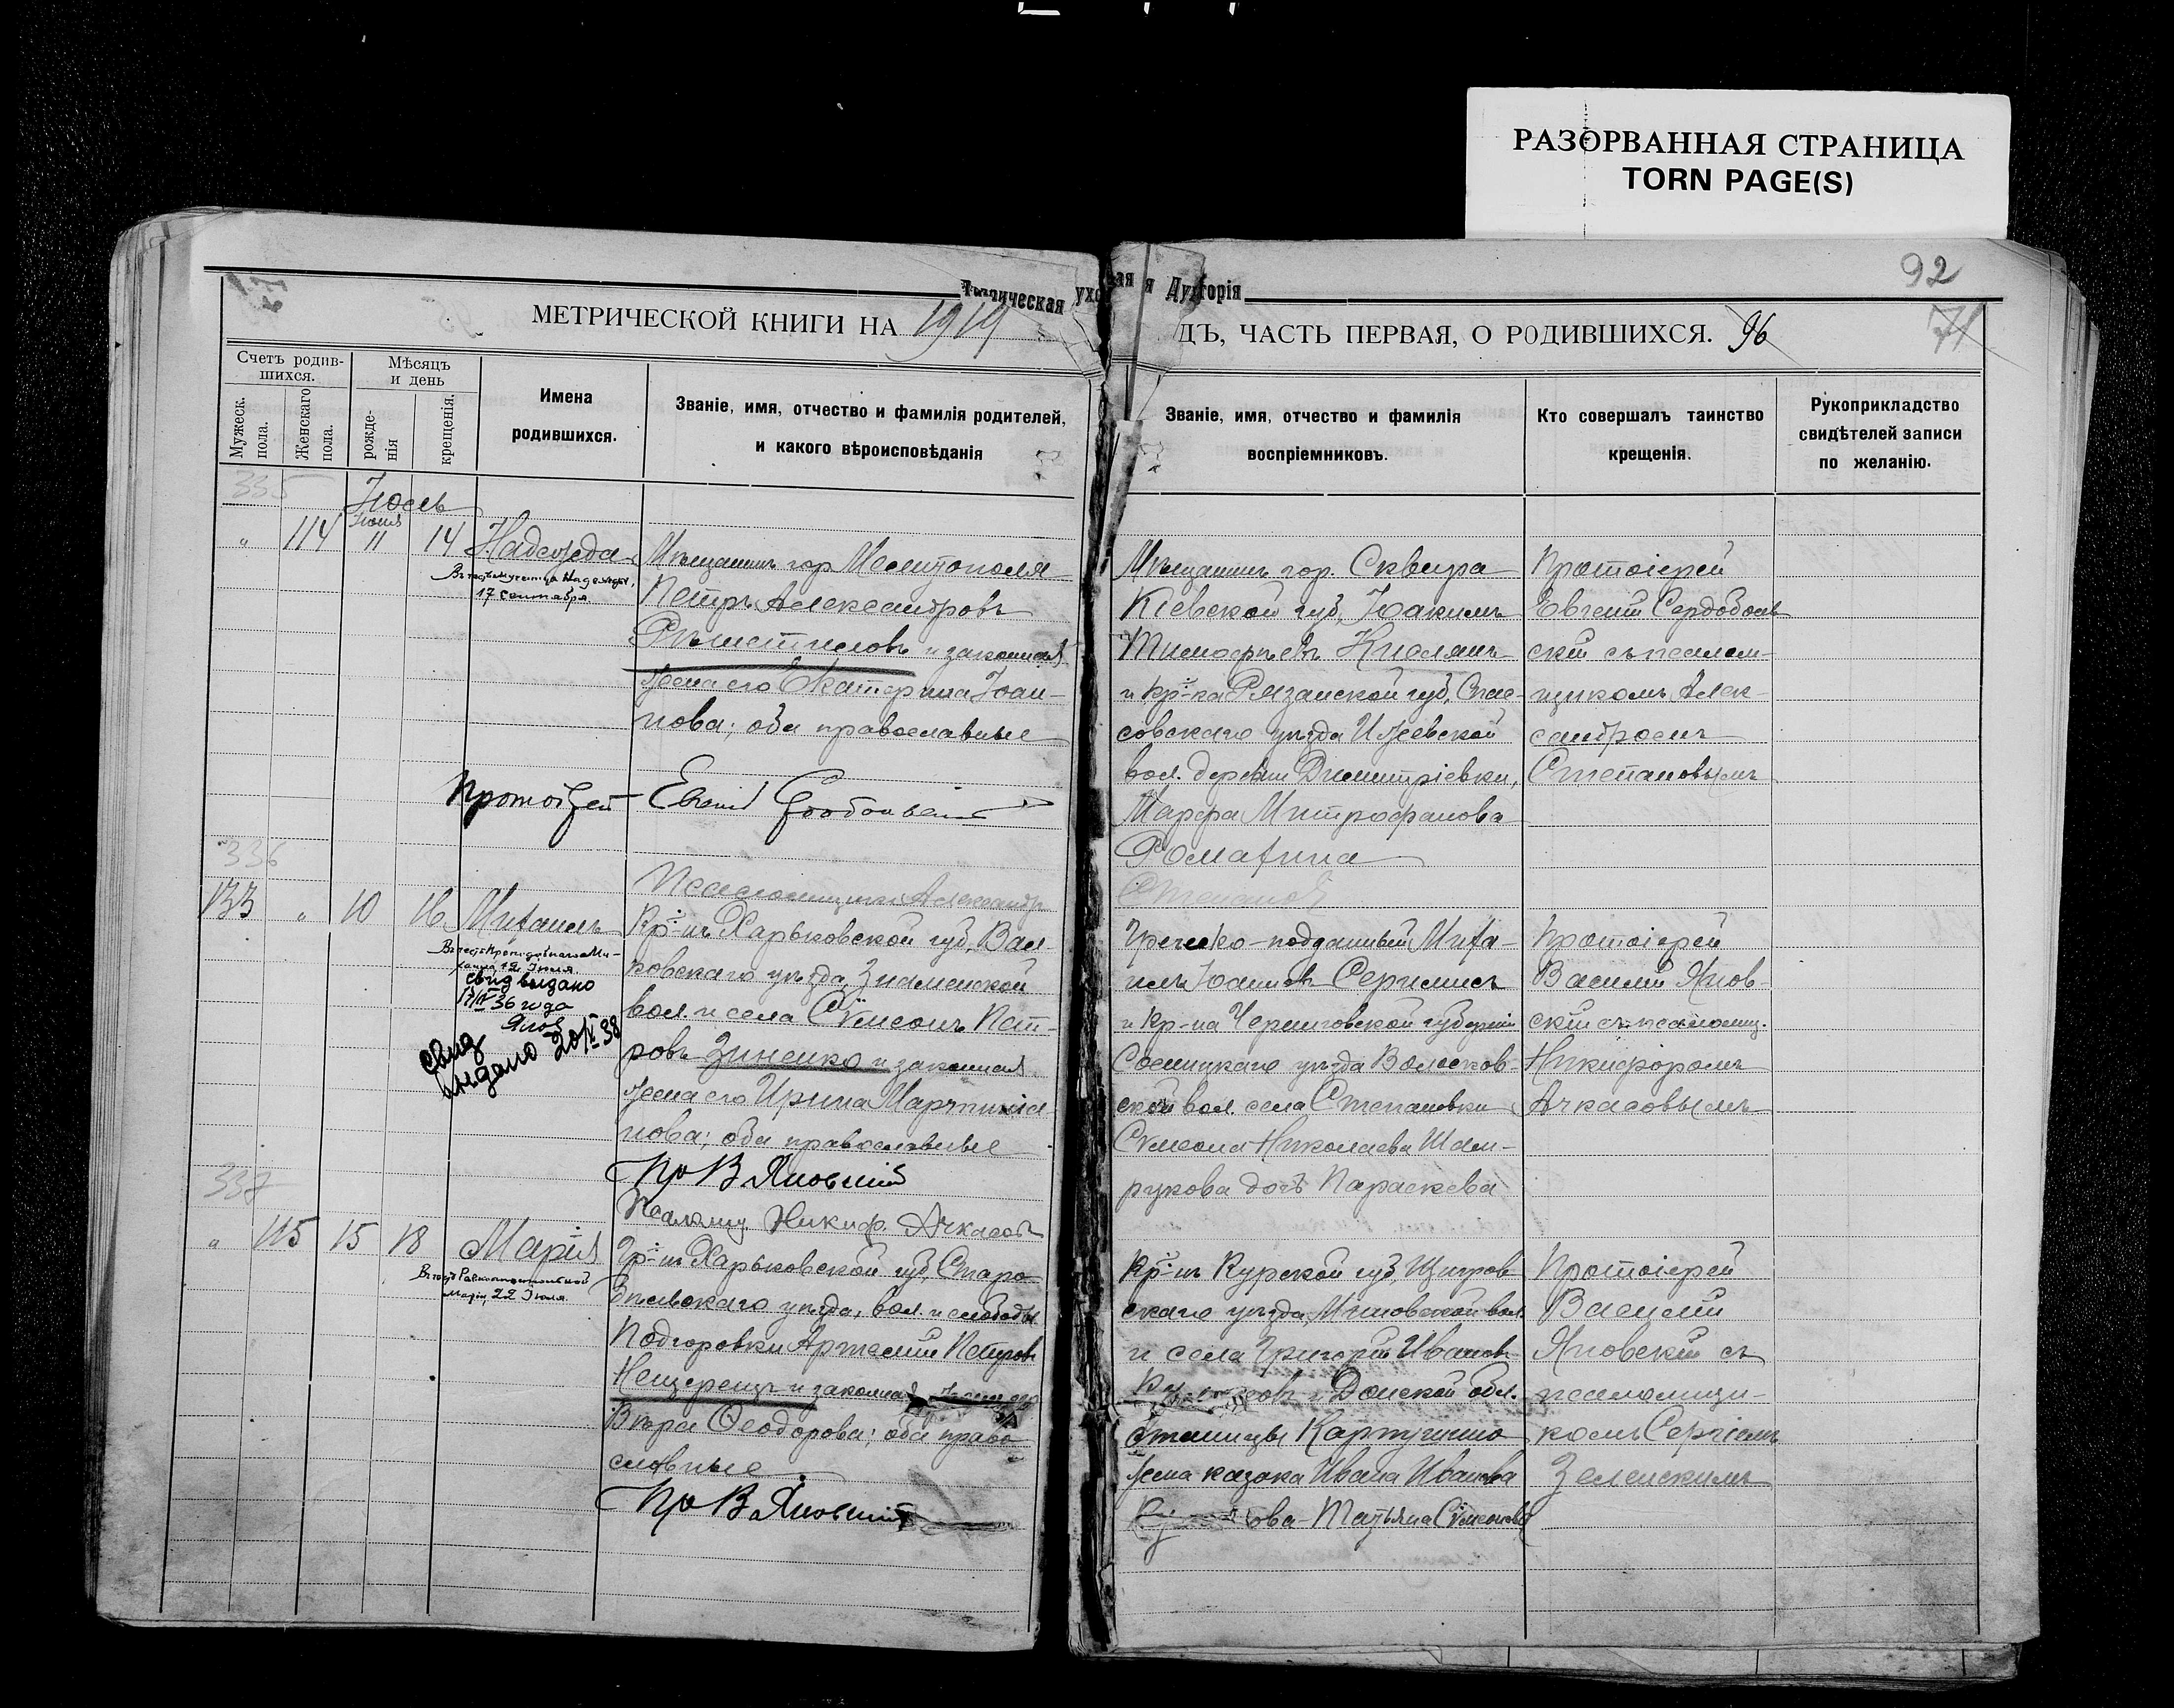 РАЗОРВАННАЯ СТРАНИЦА
TORN PAGE(S)
92
МЕТРИЧЕСКОЙ КНИГИ НА 1919
ДЪ, ЧАСТЬ ПЕРВАЯ, О РОДИВШИХСЯ. 96
71
Счетъ родив-
шихся.
Мужеск.
пола.
Женскаго
пола.
Мѣсяцъ
и день
рожде-
нія
крещенія.
Имена
родившихся.
Званіе, имя, отчество и фамилія родителей,
и какого вѣроисповѣданія
Званіе, имя, отчество и фамилія
воспріемниковъ.
Кто совершалъ таинство
крещенія.
Рукоприкладство
свидѣтелей записи
по желанію.
335
Іюль
" 114 Іюля 11 14 Надежда
17 Сентября
Мѣщанинъ гор Мелитополя
Петръ Александровъ
и законная
жена его Екатерина Іоан-
нова; оба православные
Протоіерей Евгеній
Мѣщанинъ гор. Сквира
Кіевской губ, Іоакимъ
Тимофѣевъ
и кр-ка Рязанской губ, Спас-
совскаго уѣзда Ижевской
вол. деревни Димитріевки,
Марфа Митрофанова
Протоіерей
Евгеній Сердоболь
скій съ псалом-
щикомъ Алек-
сандромъ
Степановымъ
336
Псаломщикъ Александръ
Степановъ
133 " 10 16 Михаилъ
Въ честь Преподобнаго Ми-
хаила, 12 Іюля.
свид выдано
36 года
свид
выдано 20/IV 38
Кр-нъ Харьковской губ, Вал-
ковскаго уѣзда, Знаменской
вол. и села Сѵмеонъ Пет-
ровъ Зиненко и законная
жена его Ирина Мартиніа-
нова; оба православные
Пр В Яновскій
Псаломщ Никиф. Ачкасовъ
Греческо-подданный Миха-
илъ Іоанновъ
и кр-на Черниговской губерніи
Сосницкаго уѣзда Волосков-
ской вол. села Степановки
Сѵмеона Николаева Шам-
рукова дочь Параскева
Протоіерей
Василій Янов-
скій съ псаломщ.
Никифоромъ
Ачкасовымъ
337
" 115 15 18 Марія
Въ честь Равноапостольной
Маріи, 22 Іюля.
Гр-нъ Харьковской губ, Старо-
бѣльскаго уѣзда, вол. и слободы
Подгоровки Артемій Петровъ
Нещеретъ и законная жена его
Вѣра Ѳеодорова; оба право
славные
Пр В Яновскій
Кр-нъ Курской губ, Щигров
скаго уѣзда, вол.
и села Григорій Ивановъ
Донской обл.
станицы
жена казака Ивана Иванова
ова Татьяна Сѵмеонова
Протоіерей
Василій
Яновскій съ
псаломщи-
комъ Сергіемъ
Зеленскимъ